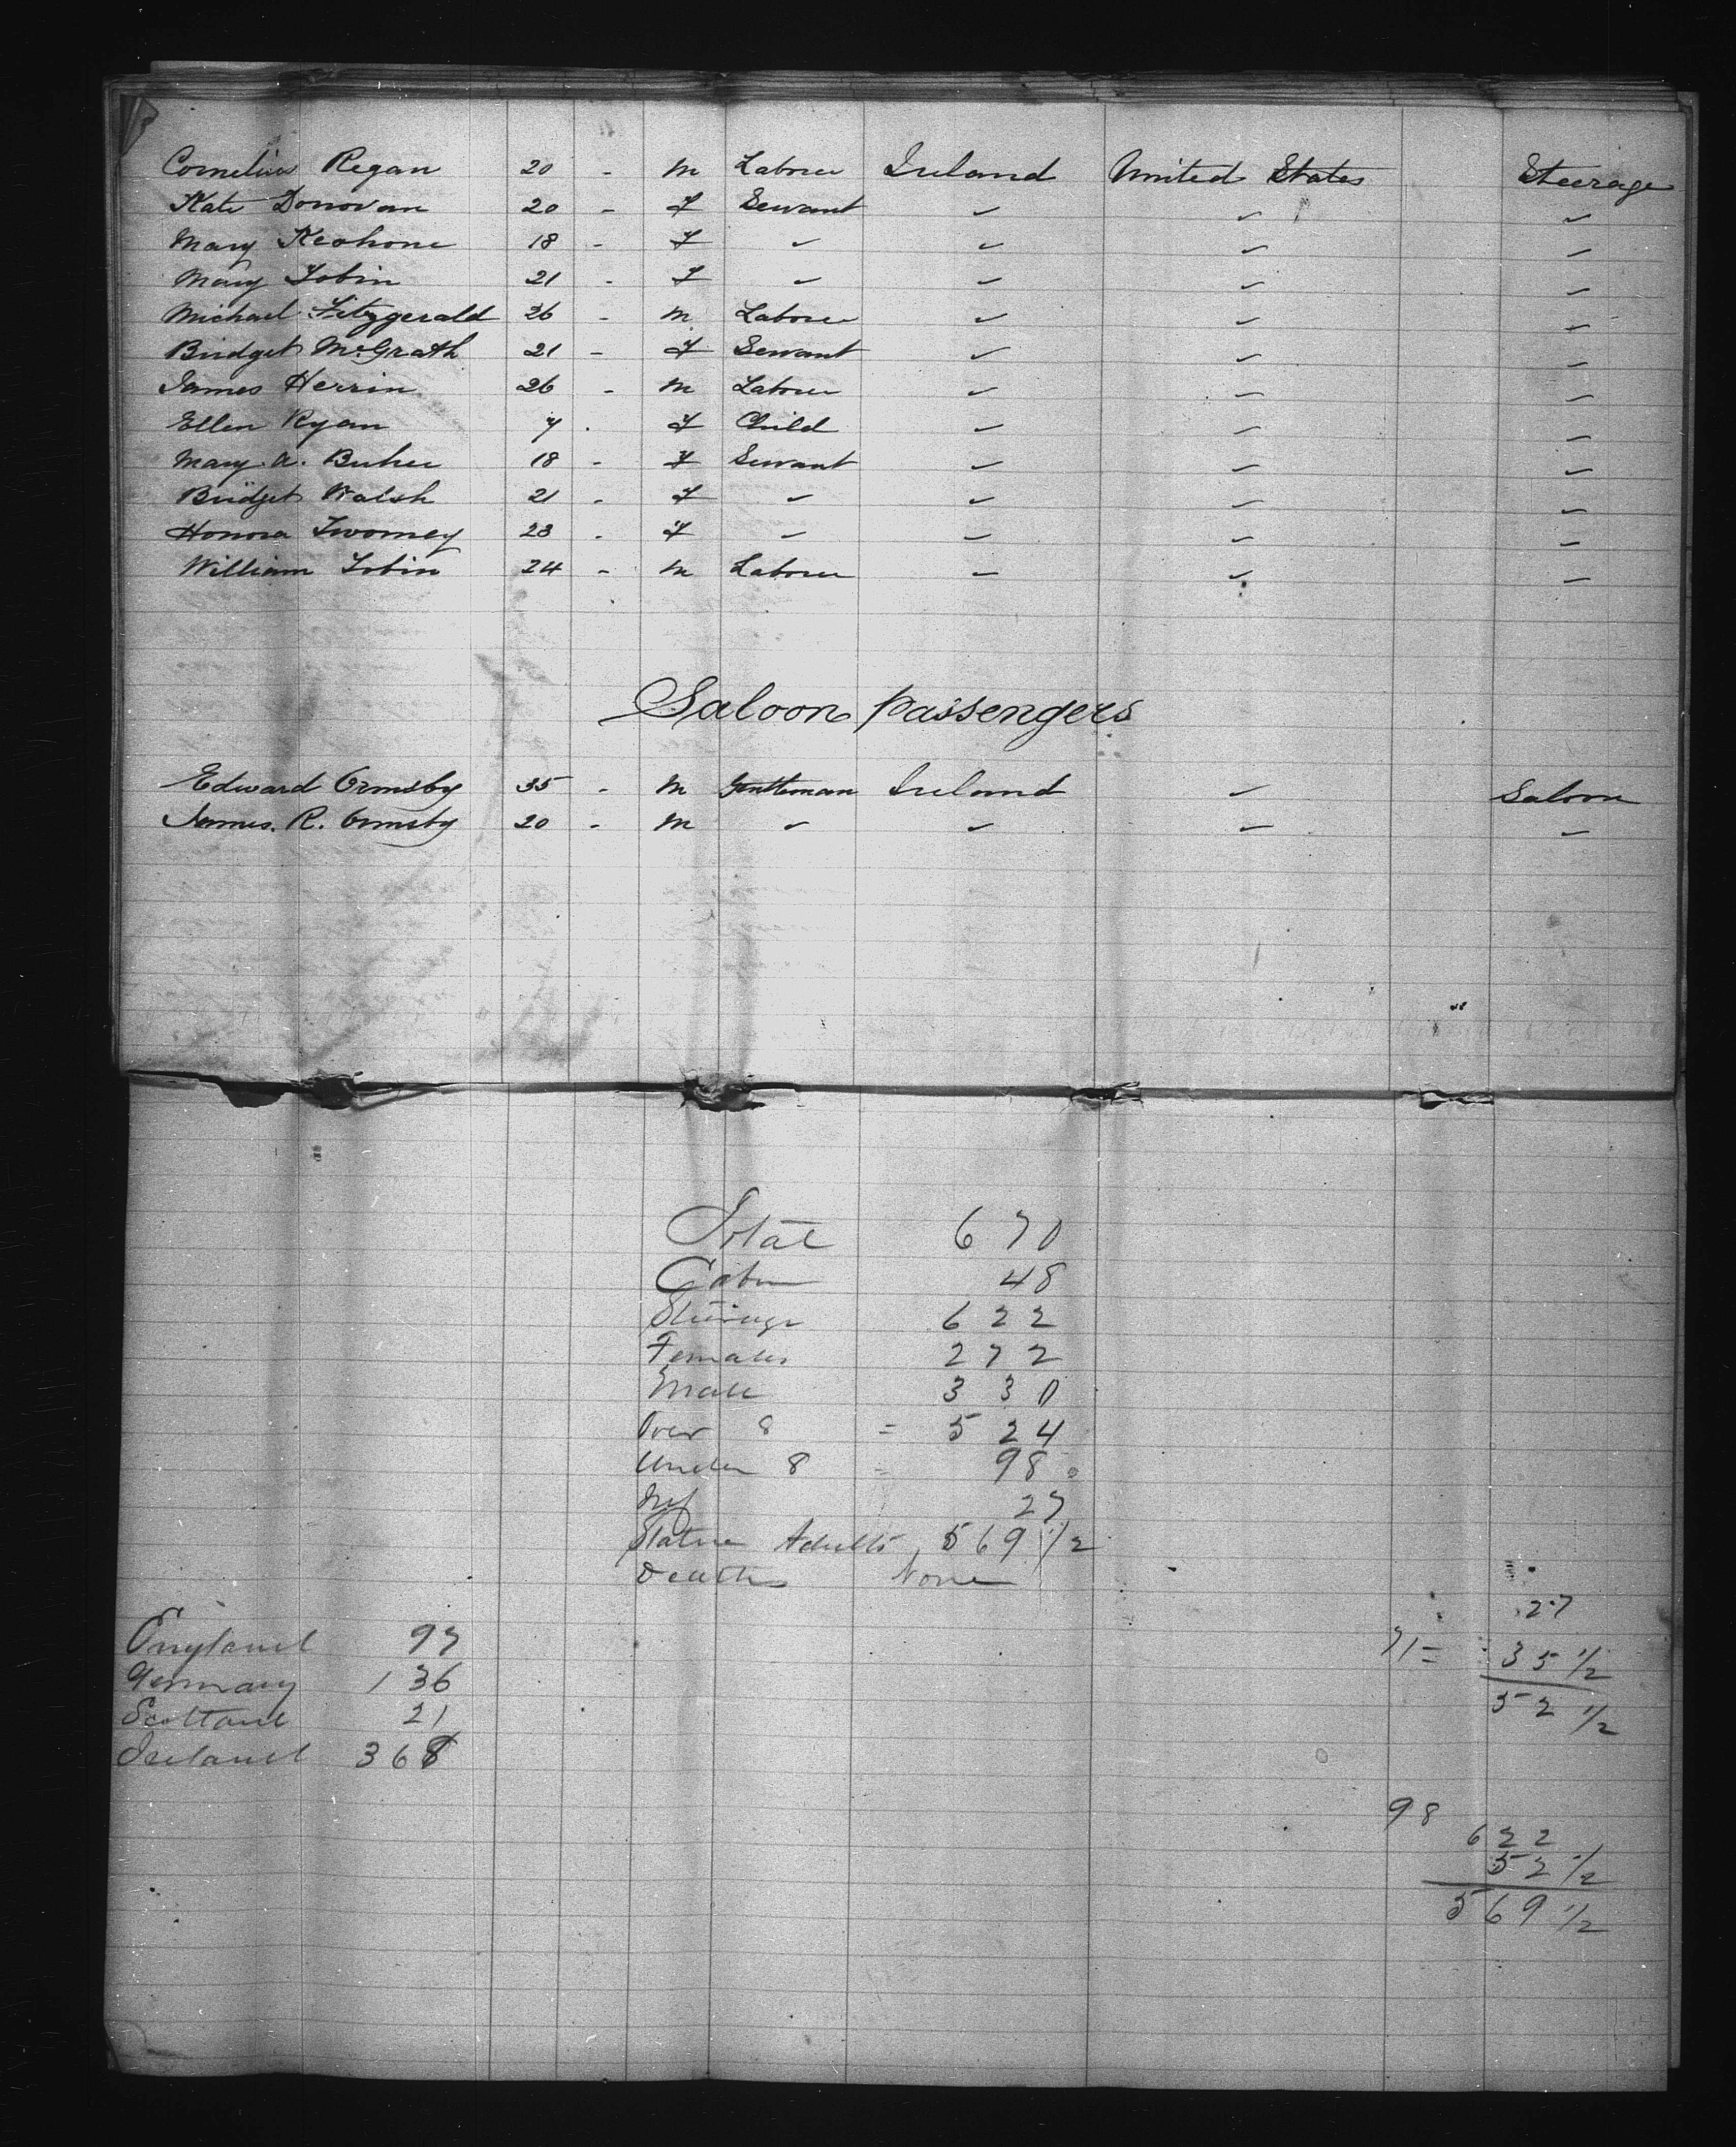 Cornelius Regan 20 - m Laborer Ireland United States Steerage
Kate Donovan 20 - F Servant ✓ ✓ ✓
Mary Keohone 18 - F ✓ ✓ ✓ ✓
Mary Tobin 21 - F ✓ ✓ ✓ ✓
Michael Fitzgerald 26 - m Laborer ✓ ✓ ✓
Bridget McGrath 21 - F Servant ✓ ✓ ✓
James Herrin 26 - m Laborer ✓ ✓ ✓
Ellen Ryan 7 - F Child ✓ ✓ ✓
Mary A. 18 - F Servant ✓ ✓ ✓
Bridget Walsh 21 - F ✓ ✓ ✓ ✓
Honora Twomey 23 - F ✓ ✓ ✓ ✓
William Tobin 24 - m Laborer ✓ ✓ ✓
Saloon passengers
Edward Ormsby 35 - m Gentleman Ireland ✓ Saloon
James. R. Ormsby 20 - m ✓ ✓ ✓ ✓
Total 670
Cabin 48
Steerage 622
Females 272
Male 330
Over 8 = 524
Under 8 = 98
Inf 27
Statue Adults 569 1/2
Deaths None
27
71 = 35 1/2
52 1/2
England 97
Germany 136
Scotland 21
Ireland 368
98
622
52 1/2
569 1/2